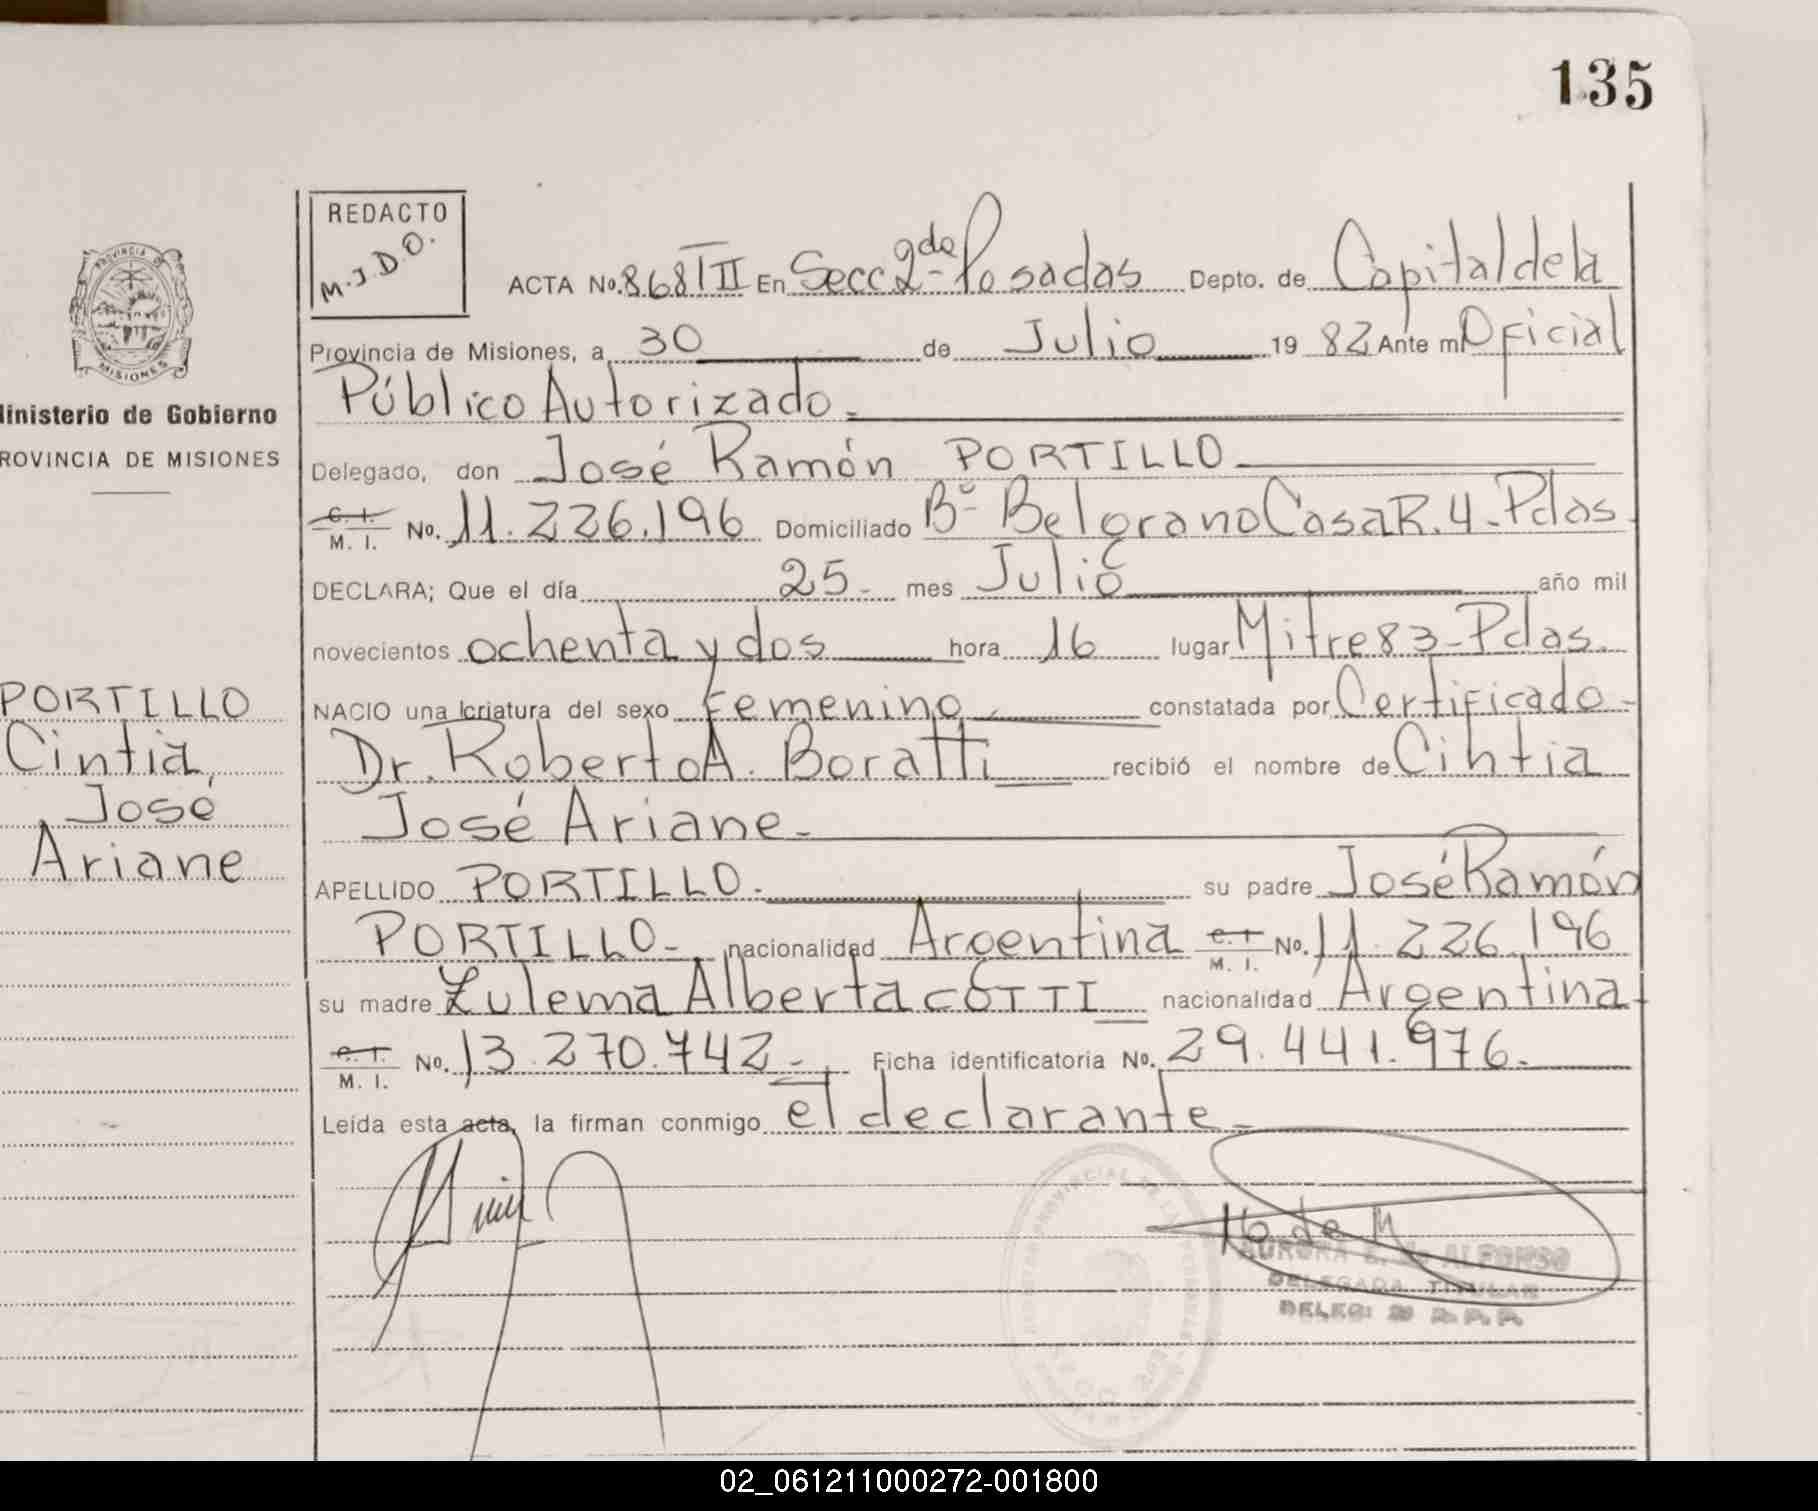 135
REDACTO
M.J.D.O.
ACTA No. 868 TII En Secc 2da- Posadas Depto. de Capital de la
Provincia de Misiones, a 30 de Julio 19 82 Ante mi Oficial
Público Autorizado.
Delegado, don José Ramón PORTILLO
C. I.
M. I. No. 11.226.196 Domiciliado Bº Belgrano Casa R.4-Pdas.
DECLARA; Que el día 25- mes Julio año mil
novecientos ochenta y dos hora 16 lugar Mitre 83-Pdas.
NACIO una criatura del sexo Femenino constatada por Certificado-
Dr. Roberto A. Boratti recibió el nombre de Cintia
José Ariane-
APELLIDO PORTILLO. su padre José Ramón
PORTILLO- nacionalidad Argentina C. I.
M. I. No. 11.226.196
su madre Zulema Alberta COTTI nacionalidad Argentina
C. I.
M. I. No. 13.270.742- Ficha identificatoria No. 29.441.976.
Leída esta acta, la firman conmigo el declarante-
PROVINCIA DE
MISIONES
Ministerio de Gobierno
PROVINCIA DE MISIONES
PORTILLO
Cintia,
José
Ariane
AURORA E. de ALFONSO
DELEGADA TITULAR
02_061211000272-001800